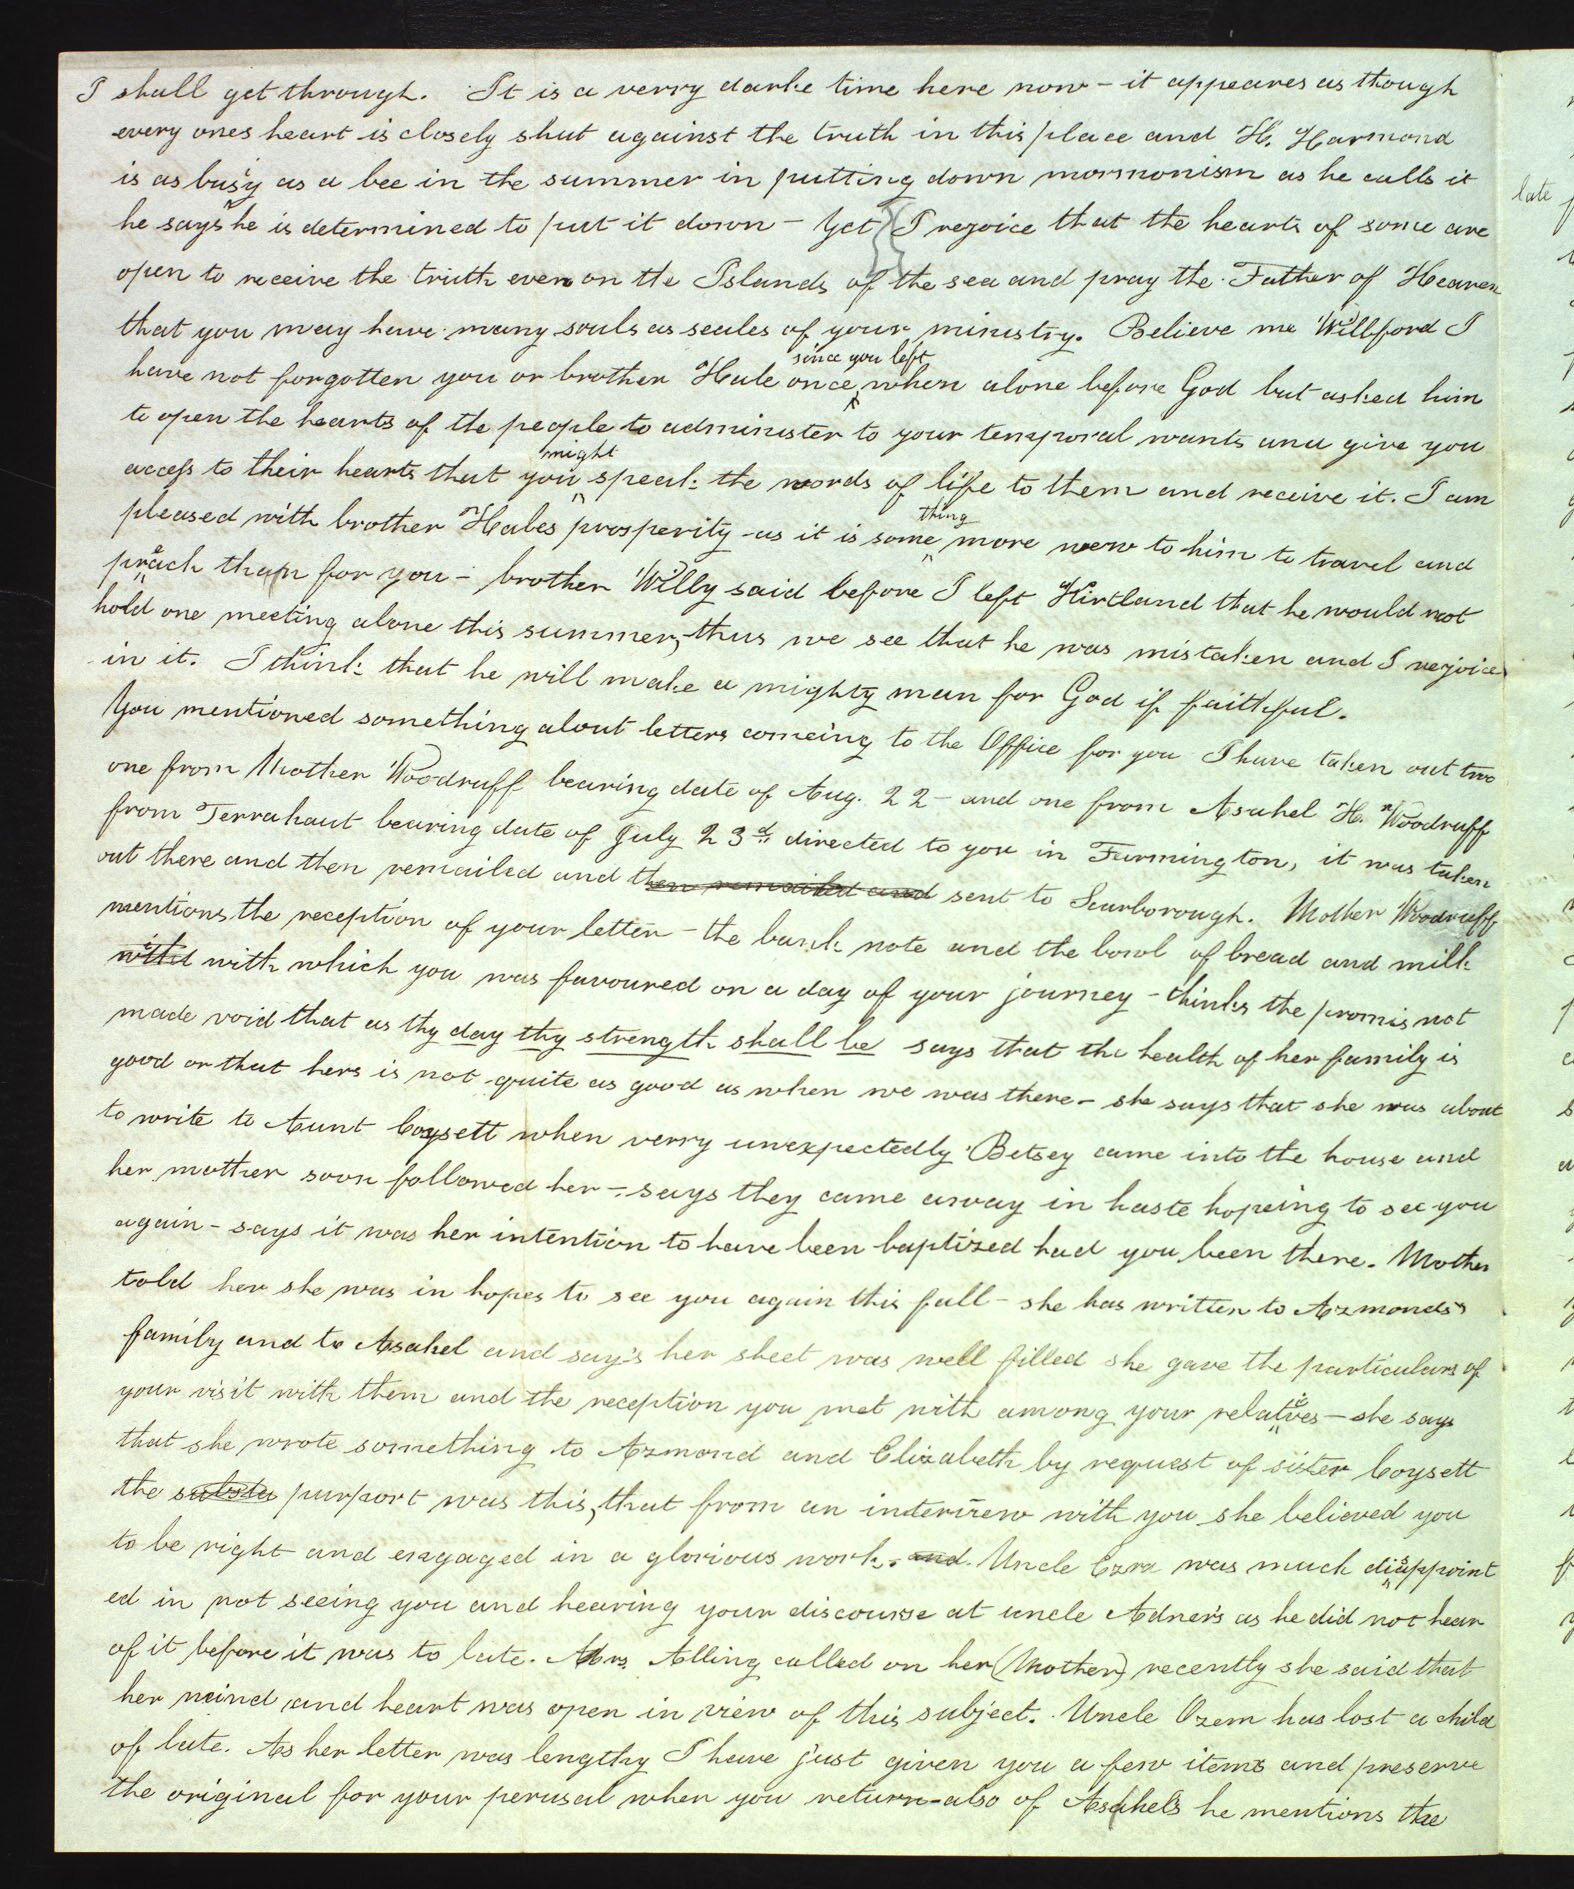 I shall get through. It is a verry darke time here now – it appeares as though
every ones heart is closely shut against the truth in this place and H. Harmond
is as busy as a bee in the summer in putting down mormonism as he calls it
he says he is determined to put it down – Yet I rejoice that the hearts of some are
open to receive the truth even on the Islands of the sea and pray the Father of Heaven
that you may have many souls as seales of your ministry. Believe me Willford I
have not forgotten you or brother Hale once since you left when alone before God but asked him
to open the hearts of the people to administer to your temporal wants and give you
access to their hearts that you might speak the words of life to them and receive it. I am
pleased with brother Hales prosperity as it is some thing more new to him to travel and
preach than for you – brother Willy said before I left Kirtland that he would not
hold one meeting alone this summer, thus we see that he was mistaken and I rejoice
in it. I think that he will make a mighty man for God if faithful.
You mentioned something about letters comeing to the Office for you I have taken out two
one from Mother Woodruff bearing date of Aug. 22 – and one from Asahel H. Woodruff
from Terrahaut bearing date of July 23d directed to you in Farmington, it was taken
out there and then remailed and then remailed and sent to Scarborough. Mother Woodruff
mentions the reception of your letter – the bank note and the bowl of bread and milk
with with which you was favoured on a day of your journey – thinks the promis not
made void that as thy day thy strength shall be says that the health of her family is
good or that hers is not quite as good as when we was there – she says that she was about
to write to Aunt Coysett when verry unexpectedly Betsey came into the house and
her mother soon followed her – says they came away in haste hopeing to see you
again – says it was her intention to have been baptized had you been there. Mother
told her she was in hopes to see you again this fall – she has written to Azmonds
family and to Asahel and say's her sheet was well filled she gave the particulars of
your visit with them and the reception you met with among your relatives – she says
that she wrote something to Azmond and Elizabeth by request of sister Coysett
the substa purport was this, that from an interview with you she believed you
to be right and engaged in a glorious work. and Uncle Ezra was much disappoint
ed in not seeing you and hearing your discourse at uncle Adners as he did not hear
of it before it was to late. Mrs. Alling called on her (Mother) recently she said that
her mind and heart was open in view of this subject. Uncle Ozem has lost a child
of late. As her letter was lengthy I have just given you a few items and preserve
the original for your perusal when you return – also of Asahels he mentions the
late